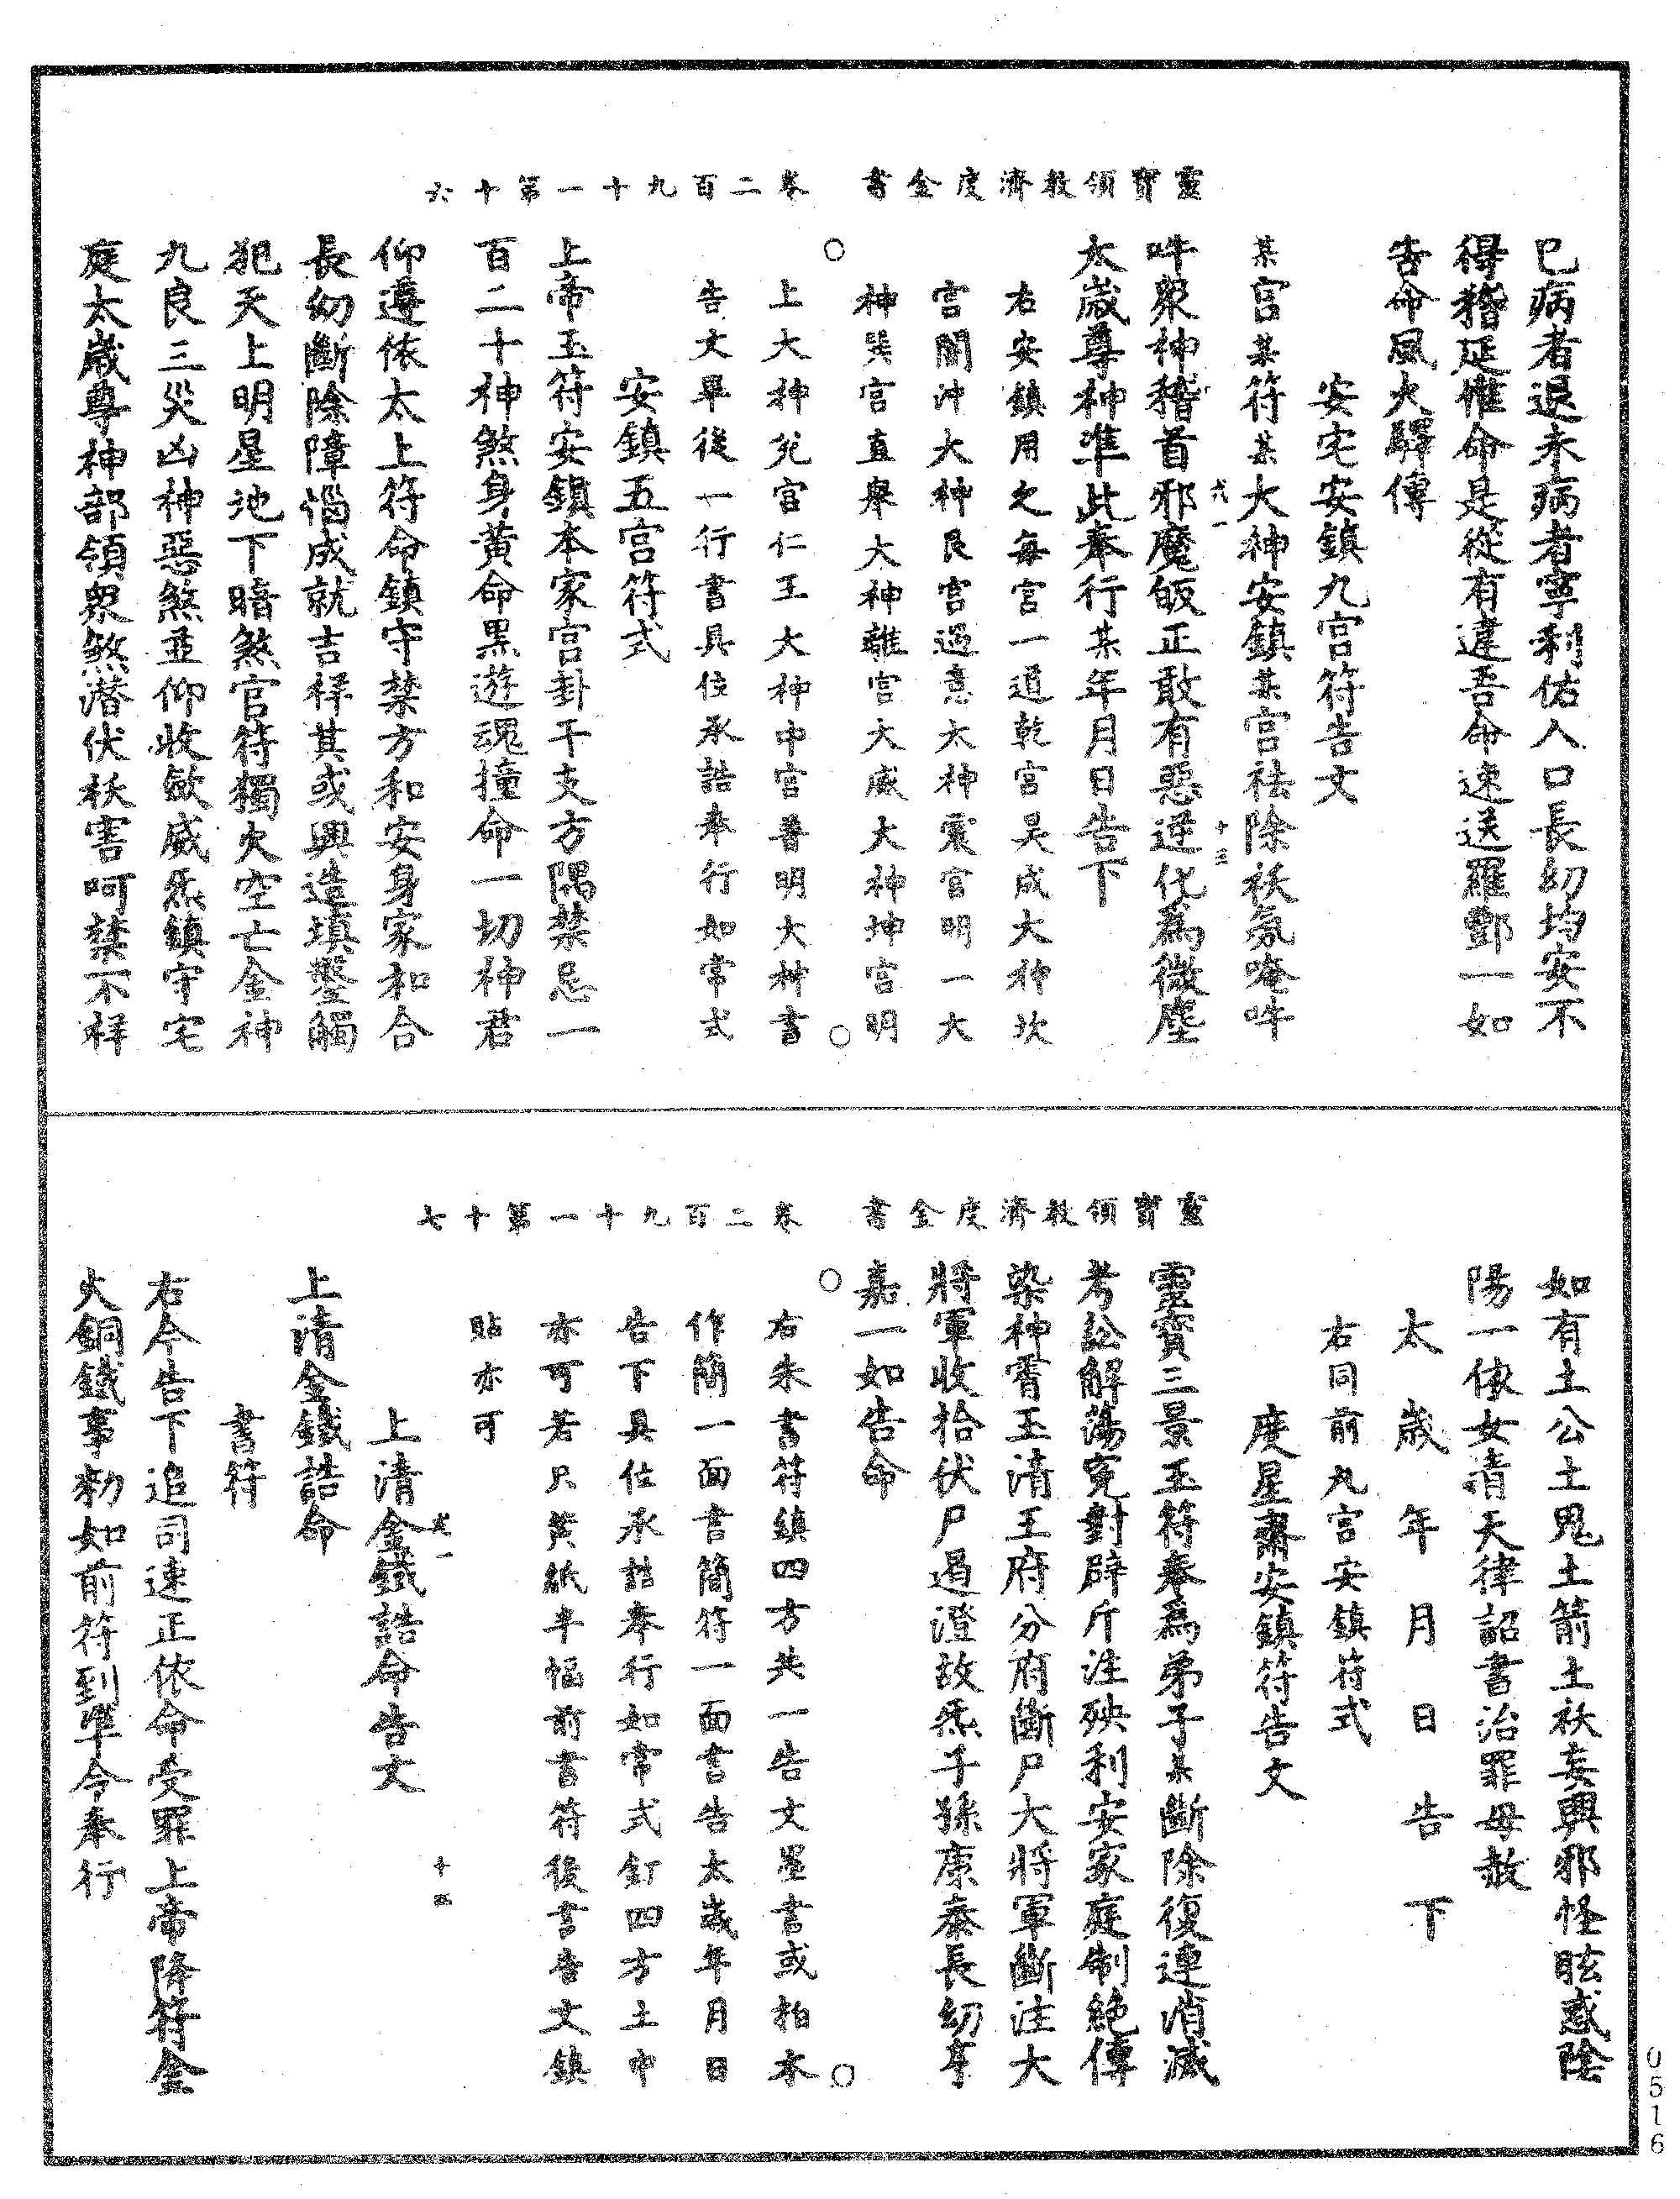 靈寶領教濟度金書　卷二百九十一第十六
已病者退未病者寧利佑人口長幼均安不
得稽延惟命是從有違吾命速送羅酆一如
告命風火驛傳
安宅安鎮九宮符告文
某宮某符某大神安鎮某宮祛除祅氛唵吽
吽衆神稽首邪魔皈正敢有惡逆化為微塵
太歲尊神準此奉行某年月日告下
右安鎮用之每宮一道乾宮昊成大神坎
宮闇沖大神艮宮過意太神震宮明一大
神巽宮直舉大神離宮大威大神坤宮明
上大神兌宮仁王大神中宮普明大神書
告文畢後一行書具位承誥奉行如常式
安鎮五宮符式
上帝玉符安鎮本家宮卦干支方隅禁忌一
百二十神煞身黃命黑遊魂撞命一切神君
仰遵依太上符命鎮守禁方和安身家和合
長幼斷除障惱成就吉祥其或興造填鑿觸
犯天上明星地下暗煞官符獨火空亡金神
九良三災凶神惡煞並仰收斂威炁鎮守宅
庭太歲尊神部領衆煞潛伏祅害呵禁不祥
十三
靈寶領教濟度金書　卷二百九十一第十七
如有土公土鬼土箭土祅妄興邪怪眩惑陰
陽一依女清天律詔書治罪毋赦
太歲年月日告下
右同前九宮安鎮符式
度星齋安鎮符告文
靈寶三景玉符奉為弟子某斷除復連消滅
考訟解蕩冤對辟斥注殃利安家庭制絕傳
染神霄玉清王府分府斷尸大將軍斷注大
將軍收拾伏尸遏澄故炁子孫康泰長幼享
嘉一如告命
右朱書符鎮四方共一告文墨書或柏木
作簡一面書簡符一面書告太歲年月日
告下具位承誥奉行如常式釘四方土中
亦可若只黃紙半幅前書符後書告文鎮
貼亦可
上清金鐵誥命告文
上清金鐵誥命
書符
右今告下追司速正依命受罪上帝降符金
火銅鐵事勑如前符到準令奉行
十四
0516